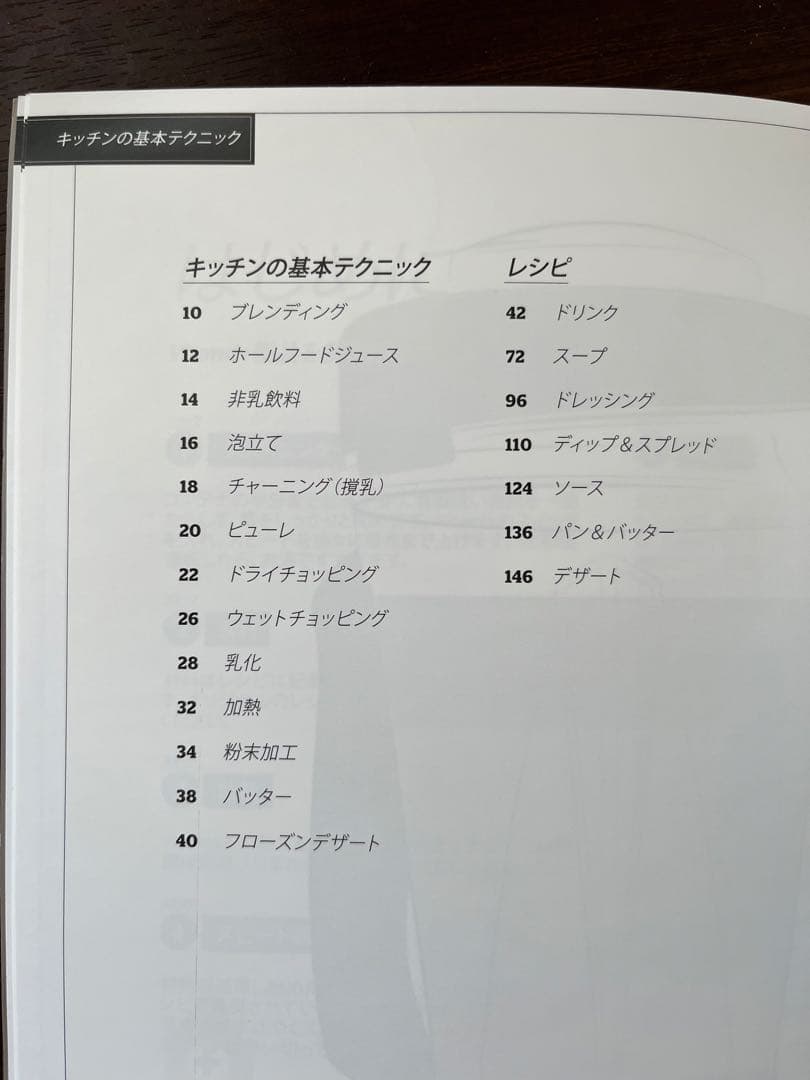 キッチンの基本テクニック
キッチンの基本テクニック
10 ブレンディング
12 ホールフードジュース
14 非乳飲料
16 泡立て
18 チャーニング（撹乳）
20 ピューレ
22 ドライチョッピング
26 ウェットチョッピング
28 乳化
32 加熱
34 粉末加工
38 バッター
40 フローズンデザート
レシピ
42 ドリンク
72 スープ
96 ドレッシング
110 ディップ＆スプレッド
124 ソース
136 パン＆バッター
146 デザート